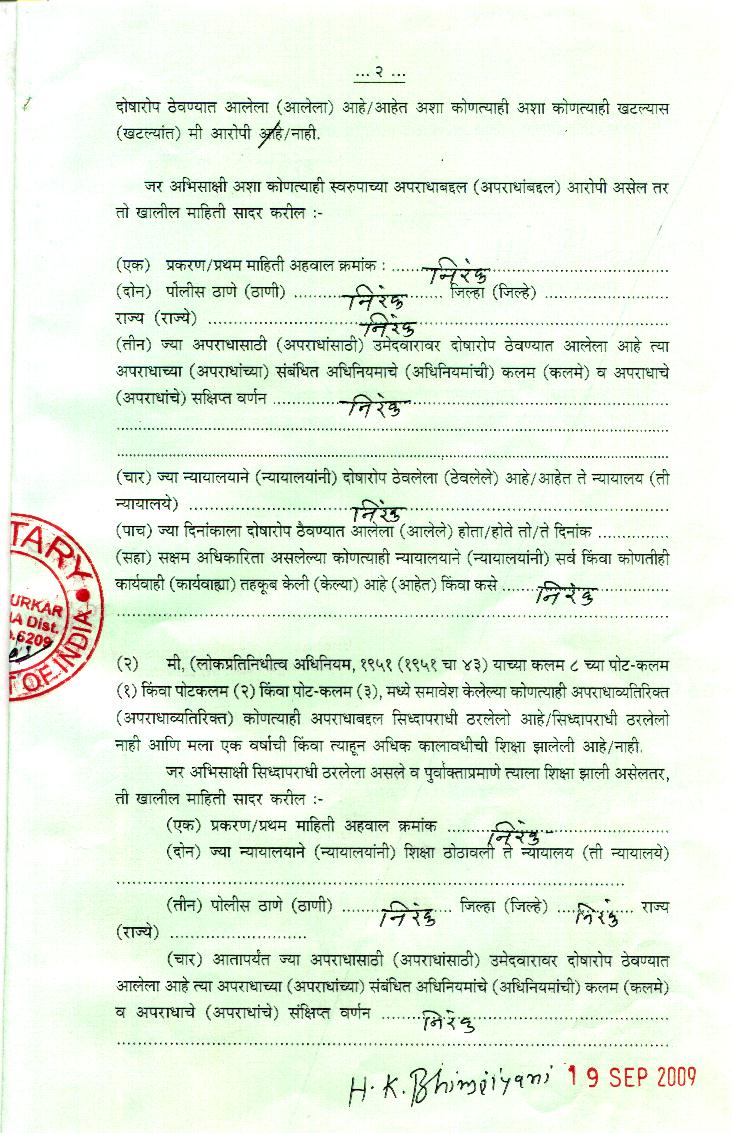 ... २ ...
दोषारोप ठेवण्यात आलेला (आलेला) आहे/आहेत अशा कोणत्याही अशा कोणत्याही खटल्यास
(खटल्यांत) मी आरोपी आहे/नाही.
जर अभिसाक्षी अशा कोणत्याही स्वरुपाच्या अपराधाबद्दल (अपराधांबद्दल) आरोपी असेल तर
तो खालील माहिती सादर करील :-
(एक) प्रकरण/प्रथम माहिती अहवाल क्रमांक : ......निरंक......
(दोन) पोलीस ठाणे (ठाणी) ......निरंक...... जिल्हा (जिल्हे) ......
राज्य (राज्ये) ......निरंक......
(तीन) ज्या अपराधासाठी (अपराधांसाठी) उमेदवारावर दोषारोप ठेवण्यात आलेला आहे त्या
अपराधाच्या (अपराधांच्या) संबंधित अधिनियमाचे (अधिनियमांची) कलम (कलमे) व अपराधाचे
(अपराधांचे) सक्षिप्त वर्णन ......निरंक......
(चार) ज्या न्यायालयाने (न्यायालयांनी) दोषारोप ठेवलेला (ठेवलेले) आहे/आहेत ते न्यायालय (ती
न्यायालये) ......निरंक......
(पाच) ज्या दिनांकाला दोषारोप ठेवण्यात आलेला (आलेले) होता/होते तो/ते दिनांक ......
(सहा) सक्षम अधिकारिता असलेल्या कोणत्याही न्यायालयाने (न्यायालयांनी) सर्व किंवा कोणतीही
कार्यवाही (कार्यवाह्या) तहकूब केली (केल्या) आहे (आहेत) किंवा कसे ......निरंक......
TARY
URKAR
IA Dist.
6209
T OF INDIA
(२) मी, (लोकप्रतिनिधीत्व अधिनियम, १९५१ (१९५१ चा ४३) याच्या कलम ८ च्या पोट-कलम
(१) किंवा पोटकलम (२) किंवा पोट-कलम (३), मध्ये समावेश केलेल्या कोणत्याही अपराधाव्यतिरिक्त
(अपराधाव्यतिरिक्त) कोणत्याही अपराधाबद्दल सिध्दापराधी ठरलेलो आहे/सिध्दापराधी ठरलेलो
नाही आणि मला एक वर्षाची किंवा त्याहून अधिक कालावधीची शिक्षा झालेली आहे/नाही.
जर अभिसाक्षी सिध्दापराधी ठरलेला असले व पुर्वोक्ताप्रमाणे त्याला शिक्षा झाली असेलतर,
ती खालील माहिती सादर करील :-
(एक) प्रकरण/प्रथम माहिती अहवाल क्रमांक ......निरंक......
(दोन) ज्या न्यायालयाने (न्यायालयांनी) शिक्षा ठोठावली ते न्यायालय (ती न्यायालये)
(तीन) पोलीस ठाणे (ठाणी) ......निरंक...... जिल्हा (जिल्हे) ...निरंक... राज्य
(राज्ये) ......
(चार) आतापर्यंत ज्या अपराधासाठी (अपराधांसाठी) उमेदवारावर दोषारोप ठेवण्यात
आलेला आहे त्या अपराधाच्या (अपराधांच्या) संबंधित अधिनियमांचे (अधिनियमांची) कलम (कलमे)
व अपराधाचे (अपराधांचे) संक्षिप्त वर्णन ......निरंक......
H. K. Bhimjiyani 19 SEP 2009